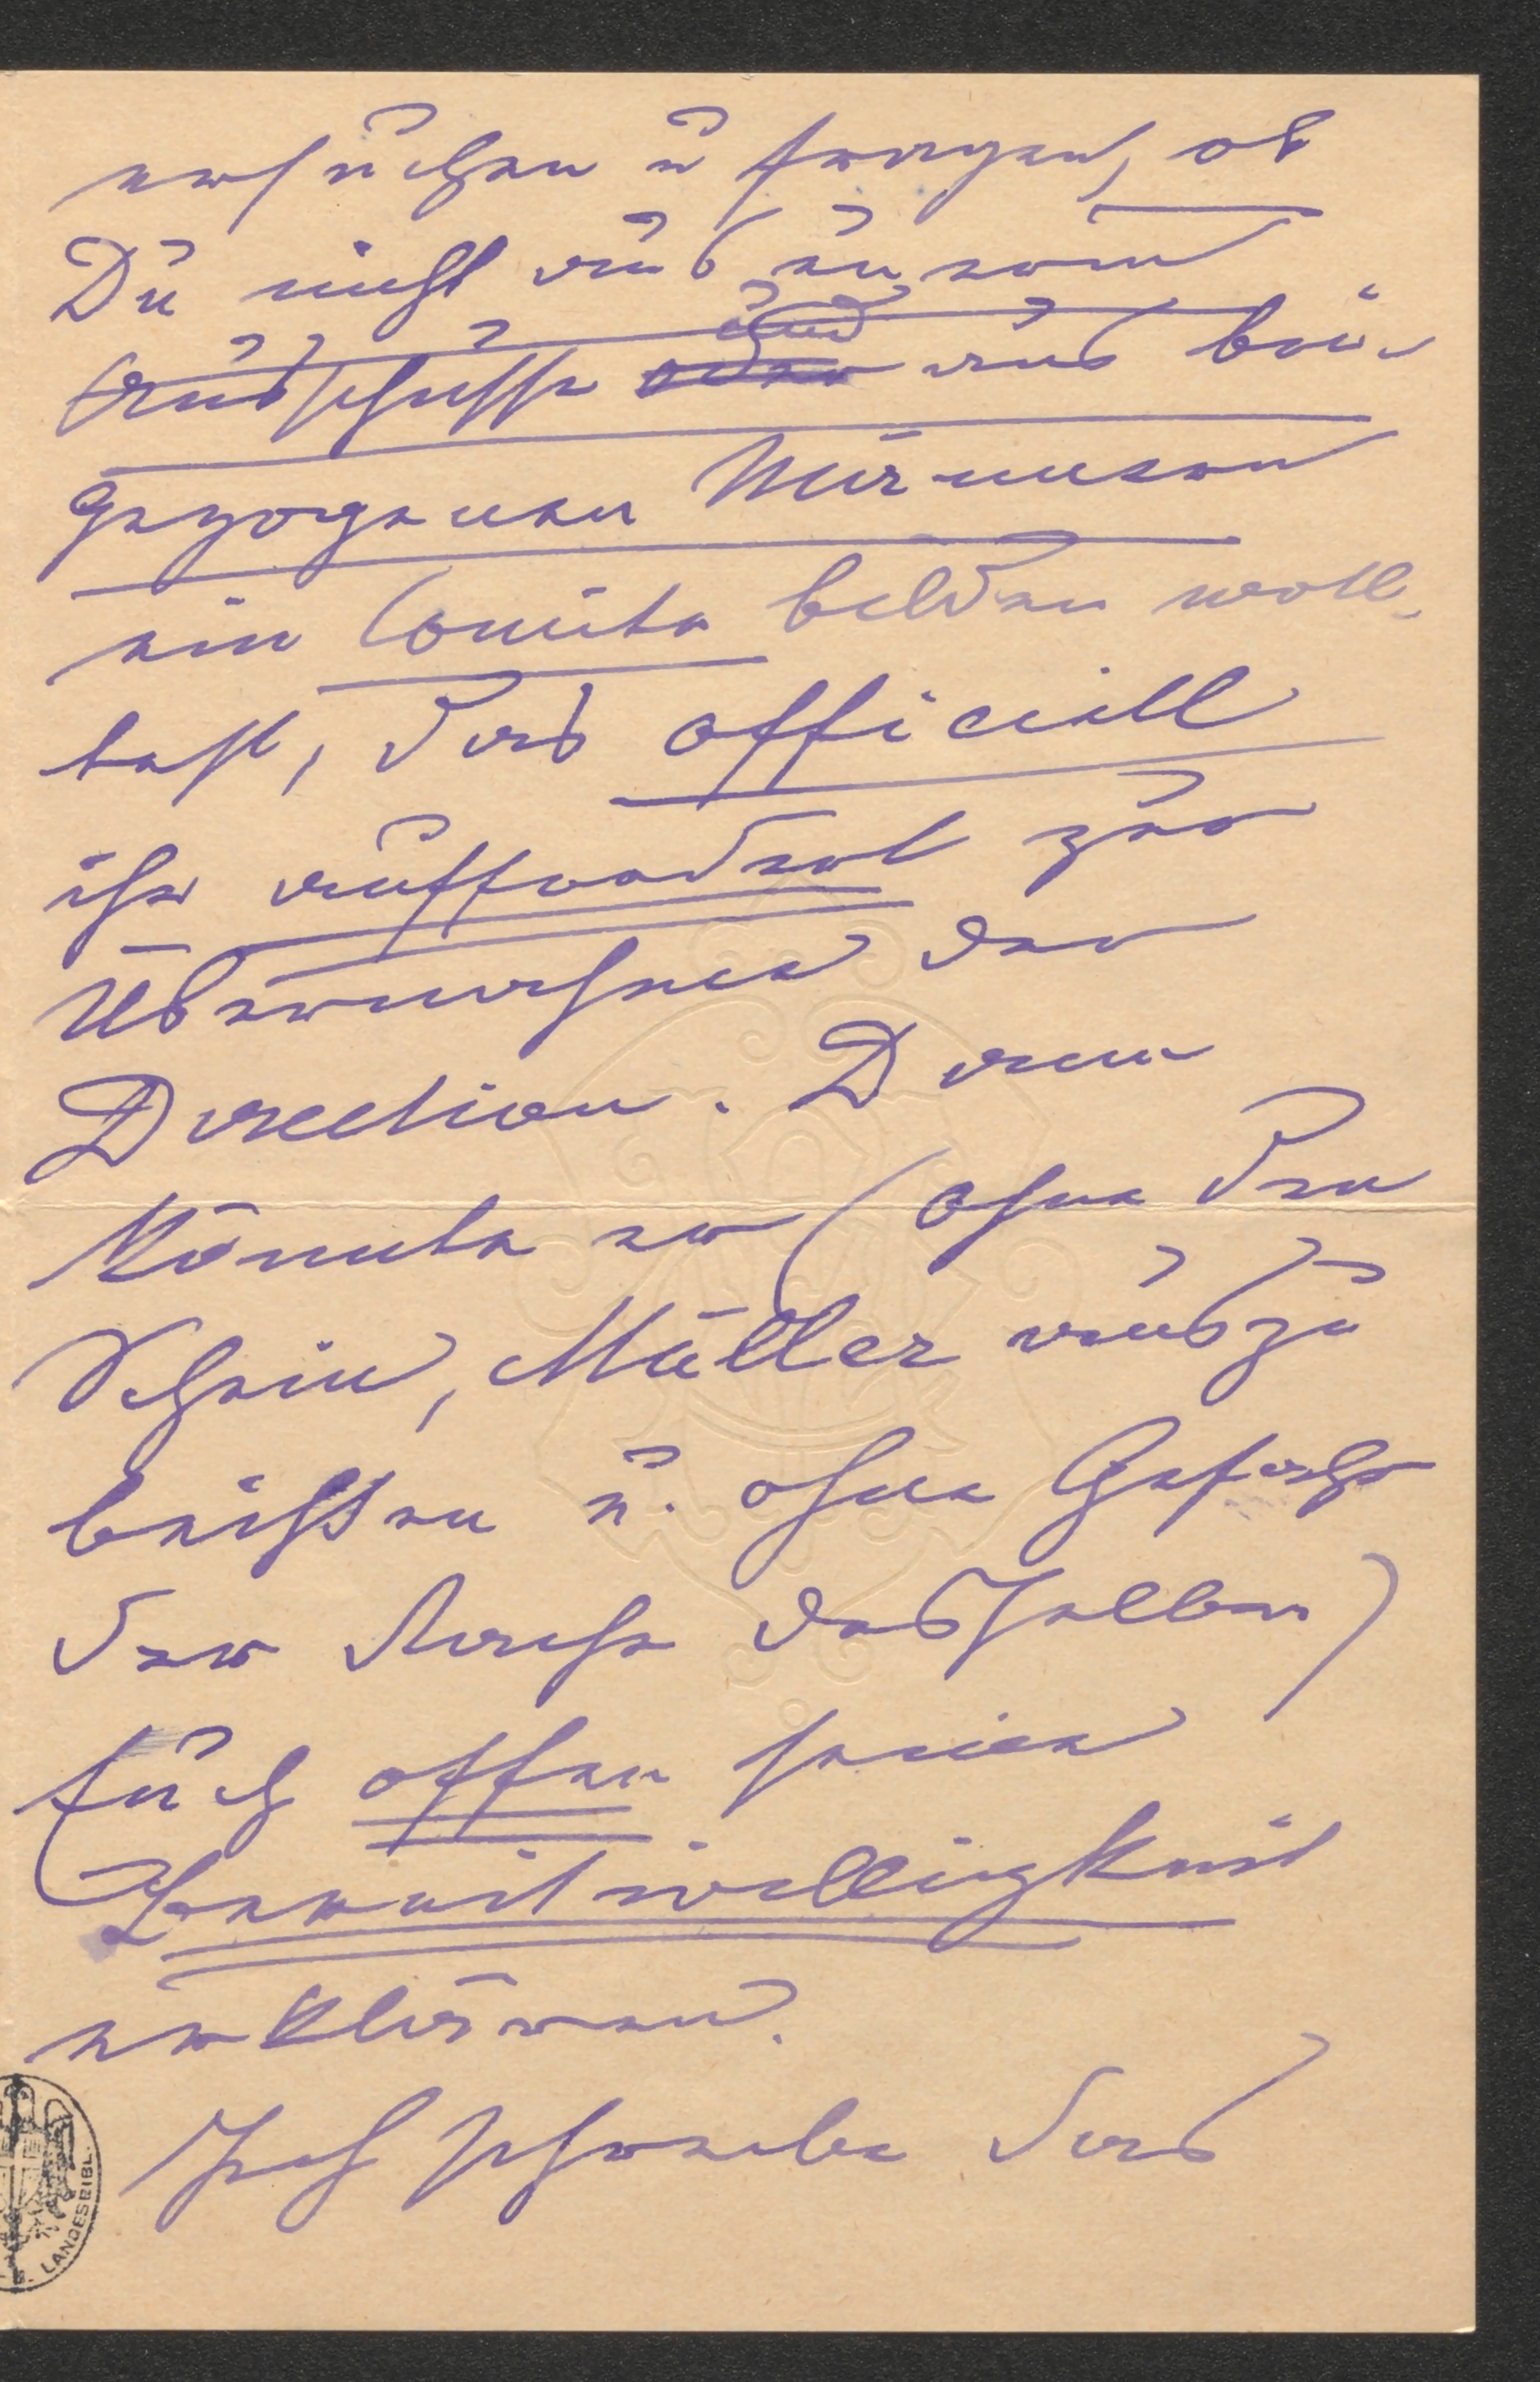 ersuchen u fragen, ob
Du nicht aus Eurem
Ausschusse und aus bei-
gezogenen Männern
ein Comite bilden woll-
test, das officiell
ihn auffordert zur
Übernahme der
Direction. Dann
könnte er (ohne den
Schein, Müller auszu
beißen u. ohne Gefahr
der Rache desselben)
Euch offen seine
Bereitwilligkeit
erklären.
Ich schreibe das
LANDESBIBL.